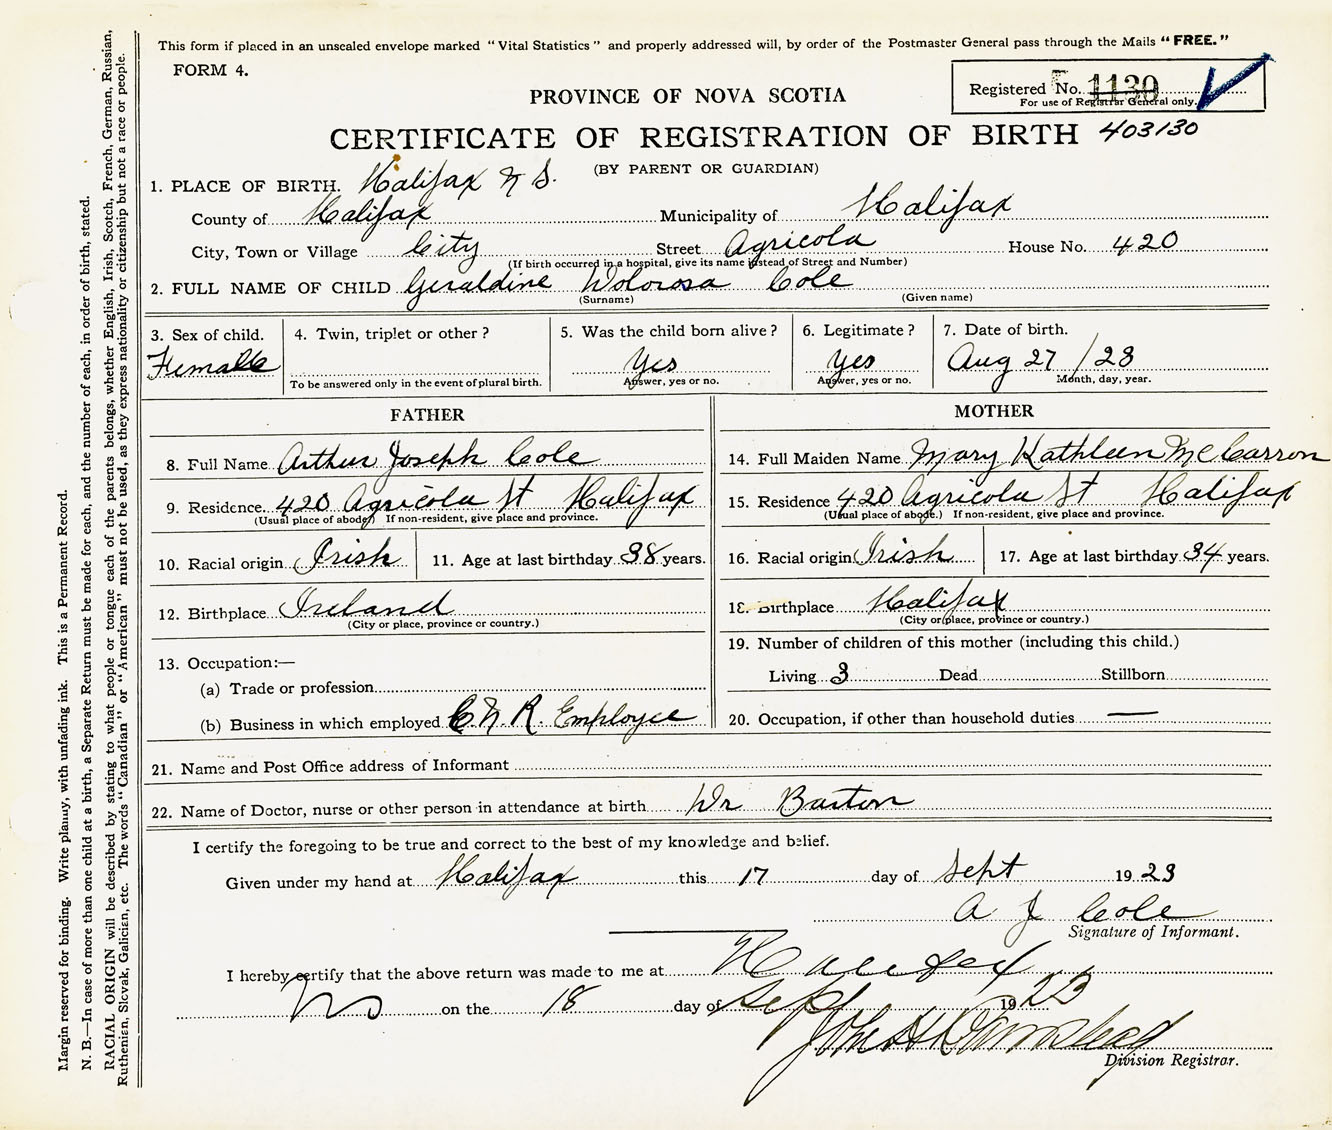 This form if placed in an unsealed envelope marked "Vital Statistics" and properly addressed will, by order of the Postmaster General pass through the Mails "FREE."
FORM 4.
Registered No. 1130
For use of Registrar General only.
PROVINCE OF NOVA SCOTIA
CERTIFICATE OF REGISTRATION OF BIRTH 403130
(BY PARENT OR GUARDIAN)
1. PLACE OF BIRTH. Halifax N S.
County of Halifax Municipality of Halifax
City, Town or Village City Street Agricola House No. 420
(If birth occurred in a hospital, give its name instead of Street and Number)
2. FULL NAME OF CHILD Geraldine Dolorosa Cole
(Surname) (Given name)
3. Sex of child. 4. Twin, triplet or other? 5. Was the child born alive? 6. Legitimate? 7. Date of birth.
Female Yes Yes Aug 27/23
To be answered only in the event of plural birth. Answer, yes or no. Answer, yes or no. Month, day, year.
FATHER
8. Full Name Arthur Joseph Cole
9. Residence. 420 Agricola St Halifax
(Usual place of abode) If non-resident, give place and province.
10. Racial origin Irish 11. Age at last birthday 38 years.
12. Birthplace Ireland
(City or place, province or country.)
13. Occupation:—
(a) Trade or profession
(b) Business in which employed C N R. Employee
MOTHER
14. Full Maiden Name Mary Kathleen McCarron
15. Residence 420 Agricola St Halifax
(Usual place of abode.) If non-resident, give place and province.
16. Racial origin Irish 17. Age at last birthday 34 years.
18. Birthplace Halifax
(City or place, province or country.)
19. Number of children of this mother (including this child.)
Living 3 Dead Stillborn
20. Occupation, if other than household duties —
21. Name and Post Office address of Informant
22. Name of Doctor, nurse or other person in attendance at birth Dr Barton
I certify the foregoing to be true and correct to the best of my knowledge and belief.
Given under my hand at Halifax this 17 day of Sept 1923
A J Cole
Signature of Informant.
I hereby certify that the above return was made to me at Halifax
NS on the 18 day of Sept 1923
John H
Division Registrar.
Margin reserved for binding. Write plainly, with unfading ink. This is a Permanent Record.
N. B.—In case of more than one child at a birth, a Separate Return must be made for each, and the number of each, in order of birth, stated.
RACIAL ORIGIN will be described by stating to what people or tongue each of the parents belongs, whether English, Irish, Scotch, French, German, Russian,
Ruthenian, Slovak, Galician, etc. The words "Canadian" or "American" must not be used, as they express nationality or citizenship but not a race or people.